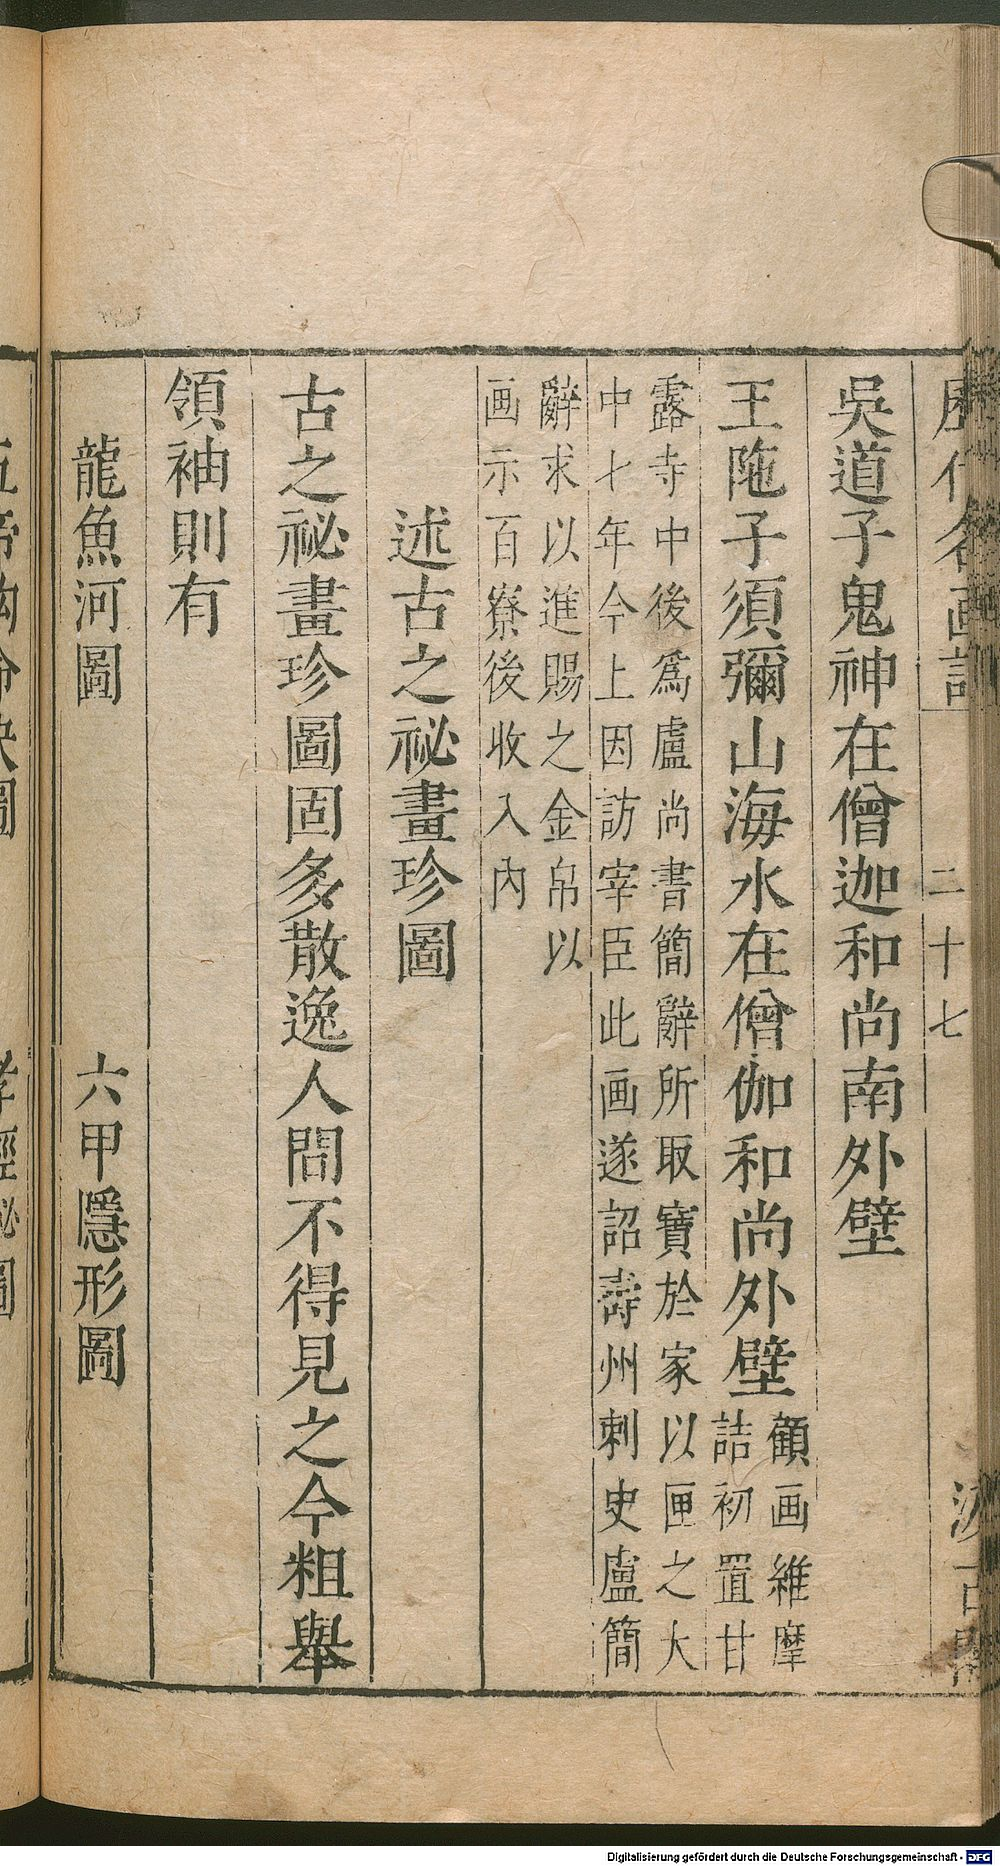 歷代名画記 二十七 汲古閣
吳道子鬼神在僧迦和尚南外壁
王陁子須彌山海水在僧伽和尚外壁顧画維摩
詰初置甘
露寺中後爲盧尚書簡辭所取寶於家以匣之大
中七年今上因訪宰臣此画遂詔壽州刺史盧簡
辭求以進賜之金帛以
画示百寮後收入內
述古之祕畫珍圖
古之祕畫珍圖固多散逸人間不得見之今粗舉
領袖則有
龍魚河圖 六甲隱形圖
五帝鉤命決圖 孝經祕圖
Digitalisierung gefördert durch die Deutsche Forschungsgemeinschaft - DFG